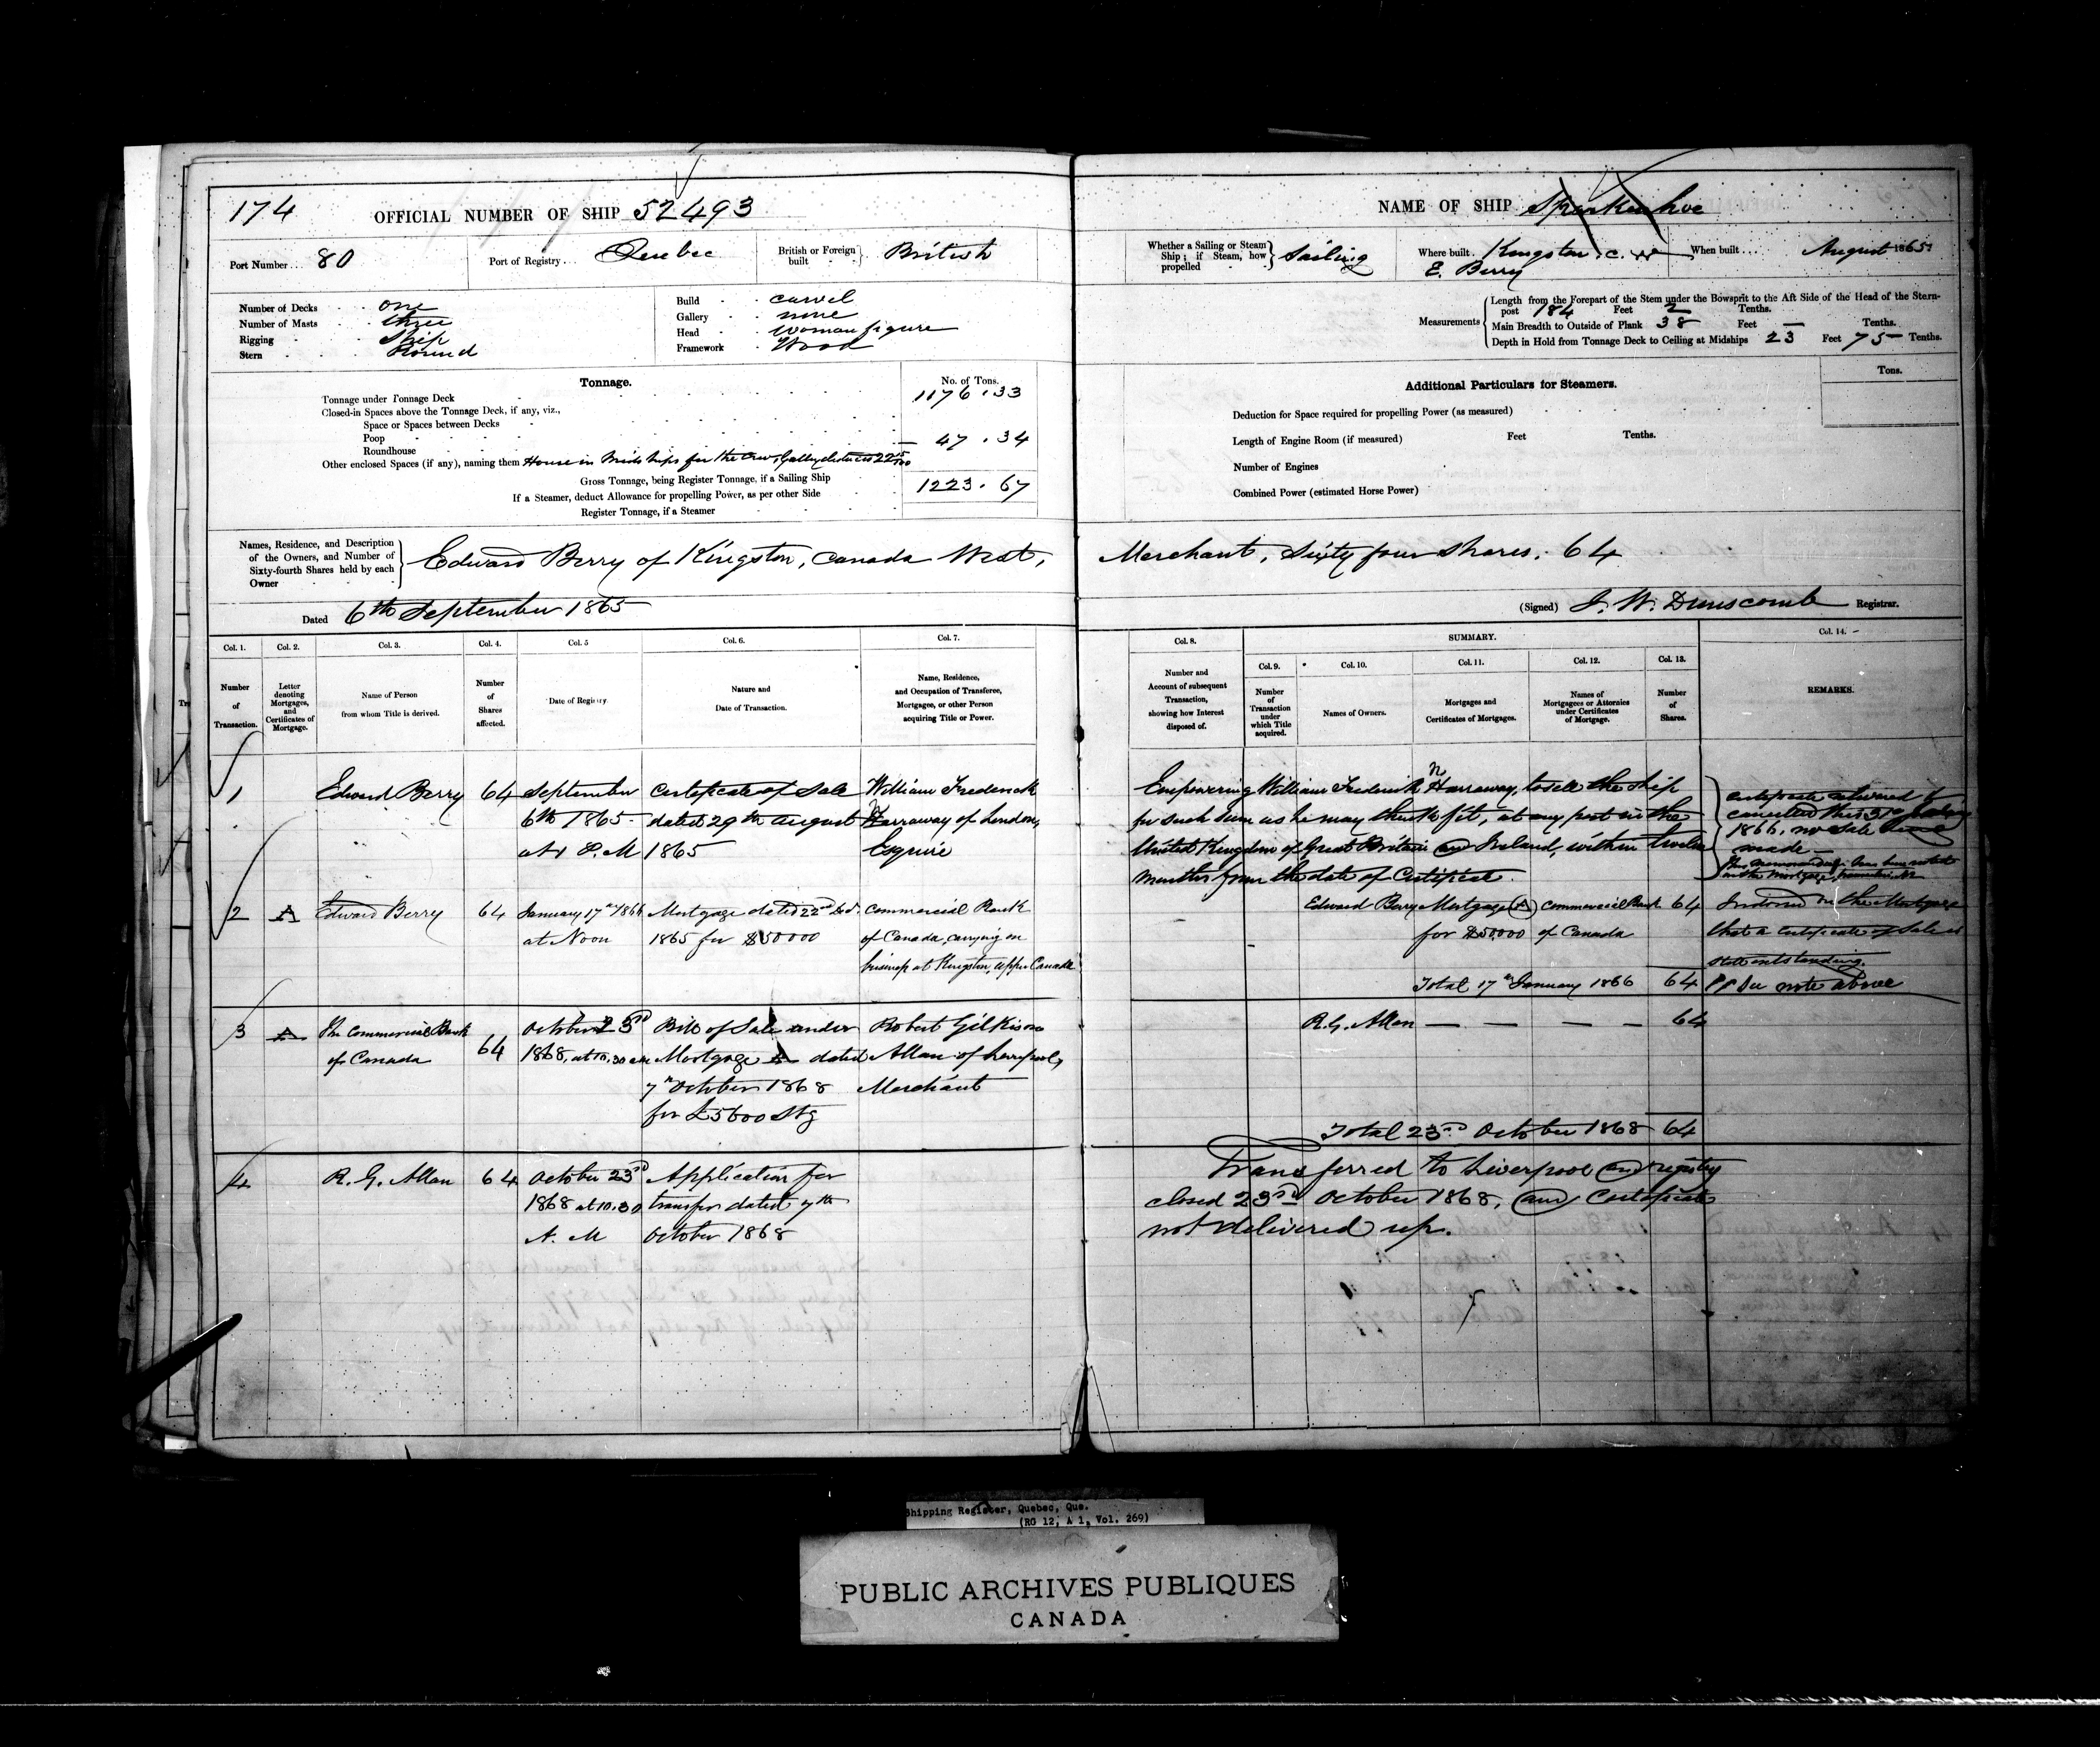 174 OFFICIAL NUMBER OF SHIP 52493
Port Number... 80 Port of Registry... Quebec British or Foreign built British
Number of Decks one
Number of Masts three
Rigging Ship
Stern Round
Build carvel
Gallery none
Head Woman figure
Framework Wood
Tonnage. No. of Tons.
Tonnage under Tonnage Deck 1176.33
Closed-in Spaces above the Tonnage Deck, if any, viz.,
Space or Spaces between Decks
Poop
Roundhouse 47.34
Other enclosed Spaces (if any), naming them House in Midships for the crew, Galley
Gross Tonnage, being Register Tonnage, if a Sailing Ship 1223.67
If a Steamer, deduct Allowance for propelling Power, as per other Side
Register Tonnage, if a Steamer
NAME OF SHIP Sparkenhoe
Whether a Sailing or Steam Ship; if Steam, how propelled Sailing
Where built Kingston C. W
E. Berry
When built... August 1865
Measurements
Length from the Forepart of the Stem under the Bowsprit to the Aft Side of the Head of the Stern-
post 184 Feet 2 Tenths.
Main Breadth to Outside of Plank 38 Feet — Tenths.
Depth in Hold from Tonnage Deck to Ceiling at Midships 23 Feet 75 Tenths.
Additional Particulars for Steamers. Tons.
Deduction for Space required for propelling Power (as measured)
Length of Engine Room (if measured) Feet Tenths.
Number of Engines
Combined Power (estimated Horse Power)
Names, Residence, and Description
of the Owners, and Number of
Sixty-fourth Shares held by each
Owner
Edward Berry of Kingston, Canada West, Merchant, Sixty four shares. 64
Dated 6th September 1865
(Signed) J. W. Dunscomb Registrar.
Col. 1. Col. 2. Col. 3. Col. 4. Col. 5 Col. 6. Col. 7.
Number of Transaction.
Letter denoting Mortgages, and Certificates of Mortgage.
Name of Person from whom Title is derived.
Number of Shares affected.
Date of Registry.
Nature and Date of Transaction.
Name, Residence, and Occupation of Transferee, Mortgagee, or other Person acquiring Title or Power.
Col. 8. SUMMARY. Col. 14.
Col. 9. Col. 10. Col. 11. Col. 12. Col. 13.
Number and Account of subsequent Transaction, showing how Interest disposed of.
Number of Transaction under which Title acquired.
Names of Owners.
Mortgages and Certificates of Mortgages.
Names of Mortgagees or Attornies under Certificates of Mortgage.
Number of Shares.
REMARKS.
1 Edward Berry 64 September Certificate of Sale William Frederick
6th 1865 dated 29th August Harraway of London,
at 1 P.M 1865 Esquire
Empowering William Frederick Harraway, to sell the ship
for such sum as he may think fit, at any port in the
United Kingdom of Great Britain and Ireland, within twelve
months from the date of Certificate.
Certificate returned &
cancelled this 31st
1866, no sale
made
2 A Edward Berry 64 January 17th 1866 Mortgage dated 22nd commercial Bank
at Noon 1865 for $50000 of Canada, carrying on
business at Kingston, Upper Canada
Edward Berry Mortgage (A) Commercial Bank 64
for $50,000 of Canada
Total 17th January 1866 64
Indorsed on the Mortgage
that a Certificate of Sale is
still outstanding.
See note above
3 A The Commercial Bank 64 October 23rd Bill of Sale under Robert Gilkison
of Canada 1868, at 10.30 am Mortgage A dated Allan of Liverpool,
7th October 1868 Merchant
for £5600 Stg
R. G. Allan — — — — 64
Total 23rd October 1868 64
4 R. G. Allan 64 October 23rd Application for
1868 at 10.30 transfer dated 7th
A. M October 1868
Transferred to Liverpool and registry
closed 23rd October 1868, and Certificate
not delivered up.
Shipping Register, Quebec, Que.
(RG 12, A 1, Vol. 269)
PUBLIC ARCHIVES PUBLIQUES
CANADA